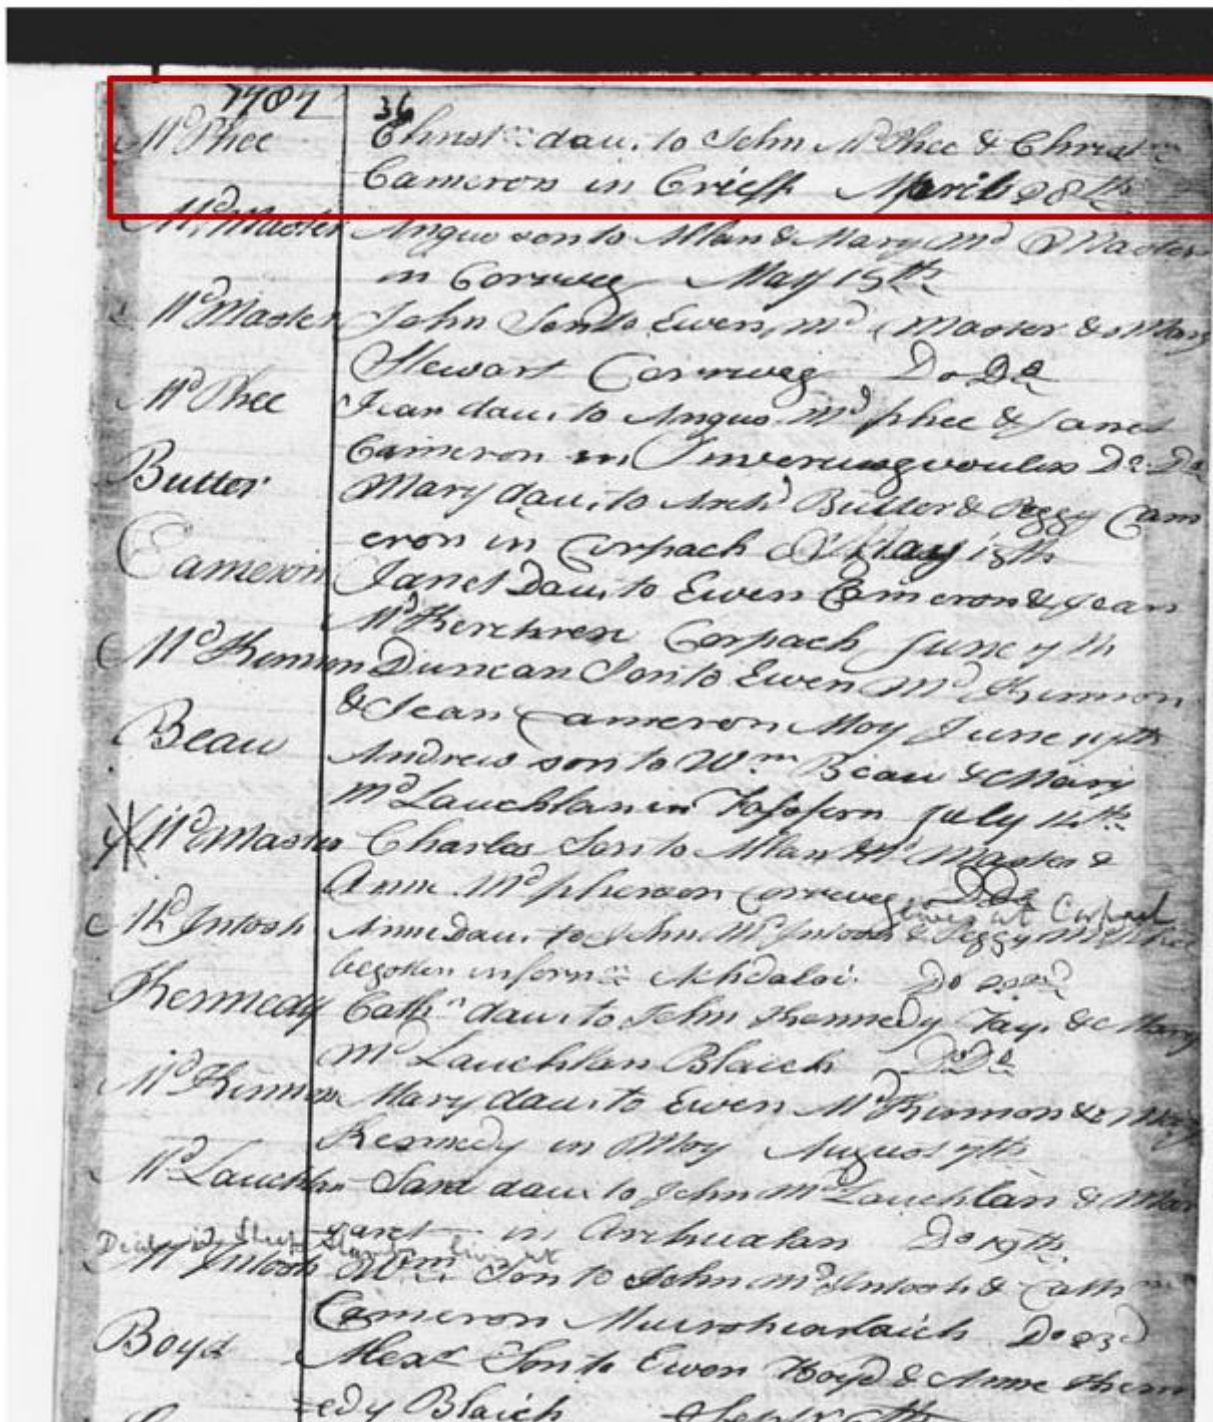 1787 36
McPhee Christn dau. to John McPhee & Christn
Cameron in Crieff April 28th
McMaster Angus son to Allan & Mary Mc Master
in Corrweg May 15th
McMaster John Son to Ewen Mc Master & Mary
Stewart Corrweg Do Do
McPhee Jean dau. to Angus Mc phee & Janet
Cameron in Do Do
Butter Mary dau. to Archd Butter & Peggy Cam
eron in Corpach May 18th
Cameron Janet Dau. to Ewen Cameron & Jean
Corpach June 7th
McKinnon Duncan Son to Ewen Mc Kinnon
& Jean Cameron Moy June 17th
Beau Andrew son to Wm Beau & Mary
McLauchlan in Fassfern July 14th
McMaster Charles Son to Allan Mc Master &
Anne Mcpherson Corrweg Do Do
lives at Corpach
McIntosh Anne Dau. to John McIntosh & Peggy McPhee
begotten in fornn Achdaloi Do
Kennedy Cathn dau. to John Kennedy Tay. & Mary
Mc Lauchlan Blaich Do Do
McKinnon Mary dau. to Ewen McKinnon & Mary
Kennedy in Moy August 7th
McLauchlan Sara dau. to John McLauchlan & Mar
garet in Do 19th
McIntosh Wm Son to John McIntosh & Cathn
Cameron Do 23d
Boyd Alexr Son to Ewen Boyd & Anne Kenn
edy Blaich Septr